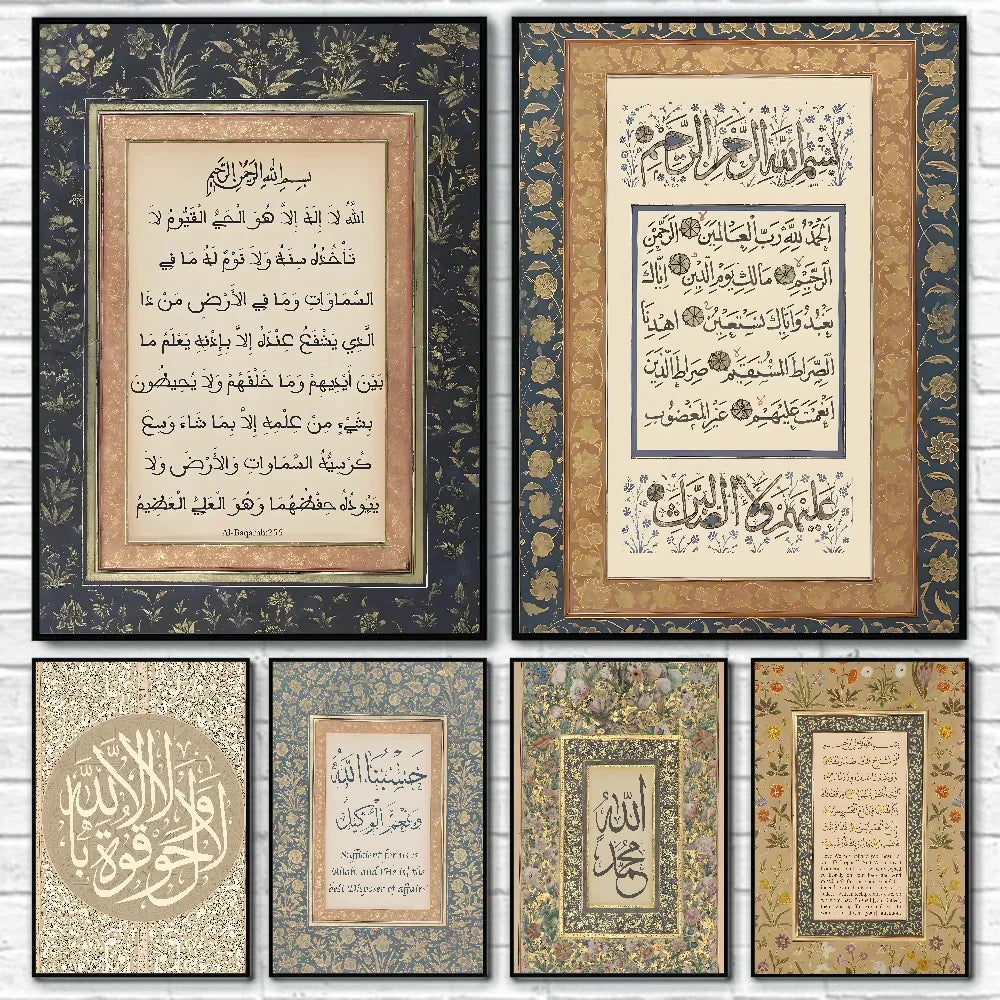 بسم الله الرحمن الرحيم
اللَّهُ لَا إِلَهَ إِلَّا هُوَ الْحَيُّ الْقَيُّومُ لَا
تَأْخُذُهُ سِنَةٌ وَلَا نَوْمٌ لَهُ مَا فِي
السَّمَاوَاتِ وَمَا فِي الْأَرْضِ مَنْ ذَا
الَّذِي يَشْفَعُ عِنْدَهُ إِلَّا بِإِذْنِهِ يَعْلَمُ مَا
بَيْنَ أَيْدِيهِمْ وَمَا خَلْفَهُمْ وَلَا يُحِيطُونَ
بِشَيْءٍ مِنْ عِلْمِهِ إِلَّا بِمَا شَاءَ وَسِعَ
كُرْسِيُّهُ السَّمَاوَاتِ وَالْأَرْضَ وَلَا
يَئُودُهُ حِفْظُهُمَا وَهُوَ الْعَلِيُّ الْعَظِيمُ
Al-Baqarah:255
بسم الله الرحمن الرحيم
الحمد لله رب العالمين الرحمن
الرحيم مالك يوم الدين اياك
نعبد واياك نستعين اهدنا
الصراط المستقيم صراط الذين
انعمت عليهم غير المغضوب
عليهم ولا الضالين
لا حول ولا قوة إلا بالله
حَسْبُنَا اللَّهُ
وَنِعْمَ الْوَكِيلُ
Sufficient for us is
Allah, and [He is] the
best Disposer of affairs"
الله
محمد